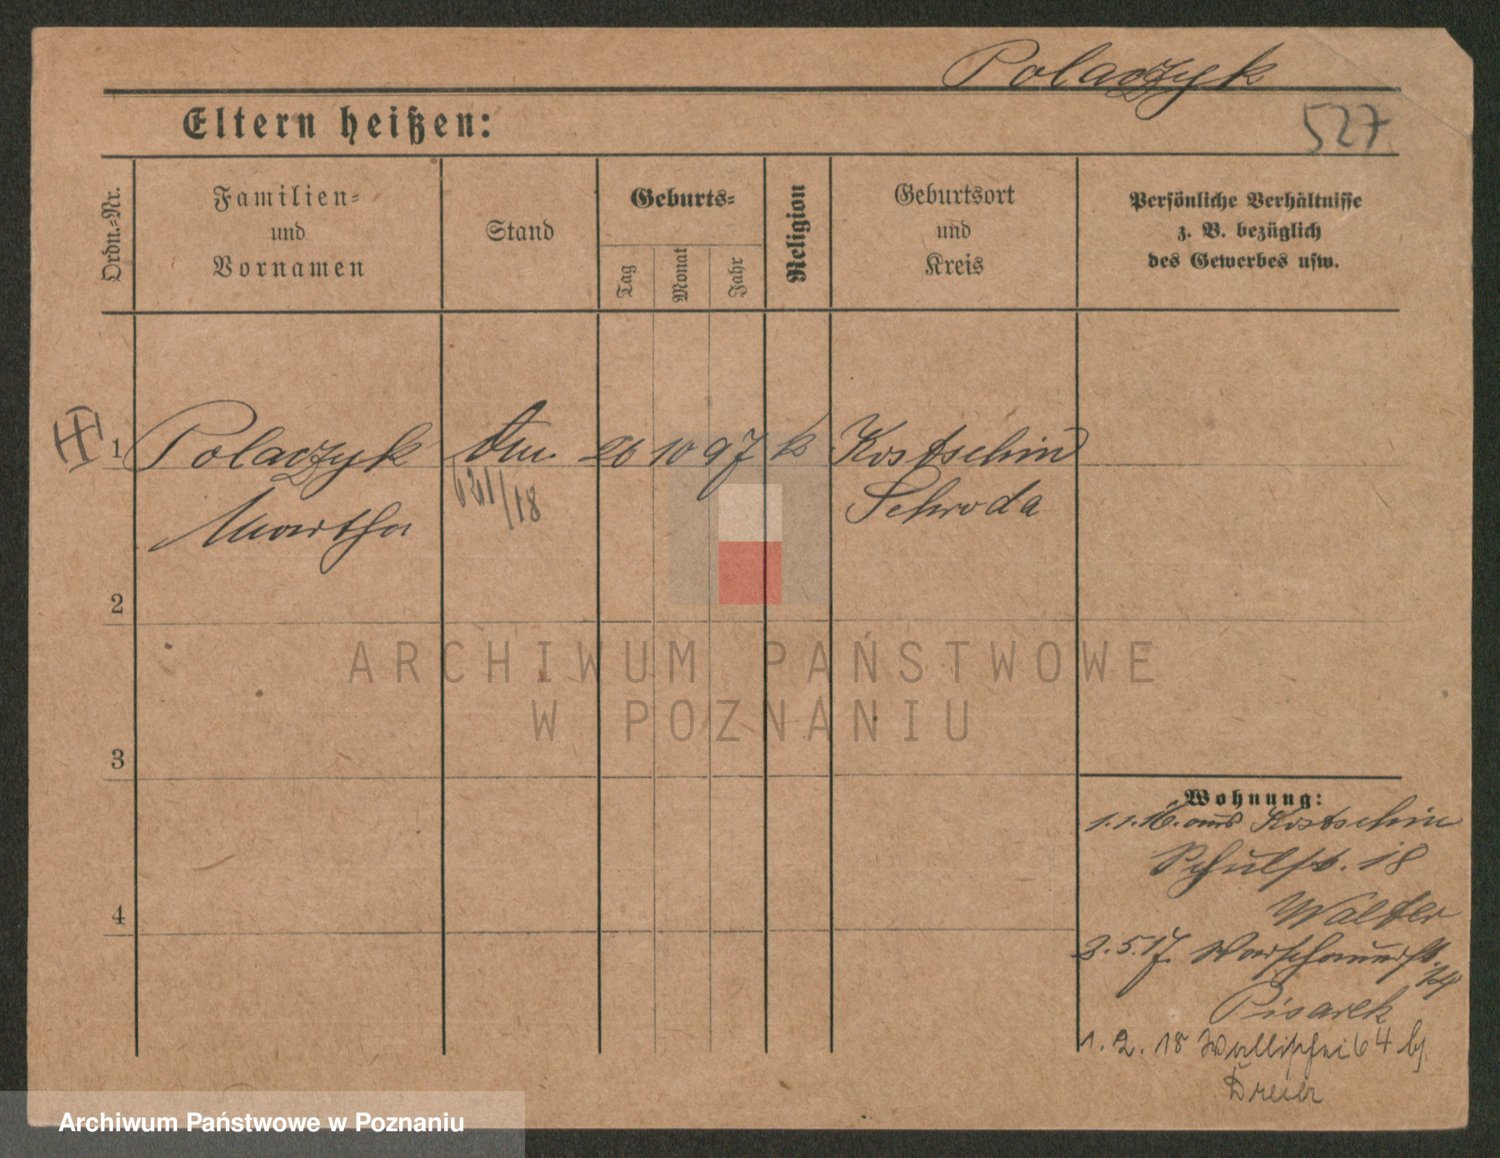 Polaczyk
527
Eltern heißen:
Ordn.-Nr.
Familien-
und
Vornamen
Stand
Geburts-
Tag
Monat
Jahr
Religion
Geburtsort
und
Kreis
Persönliche Verhältnisse
z. B. bezüglich
des Gewerbes usw.
1 Polaczyk 26 10 97 k Kostschin
Martha /18 Schroda
2
3
4
ARCHIWUM PAŃSTWOWE
W POZNANIU
Wohnung:
1.1.16. aus Kostschin
Schulst. 18
Walter
2.5.17. Warschauerst.
14
Pisarek
1.2.18 Wallischei 64 bj
Dreier
Archiwum Państwowe w Poznaniu